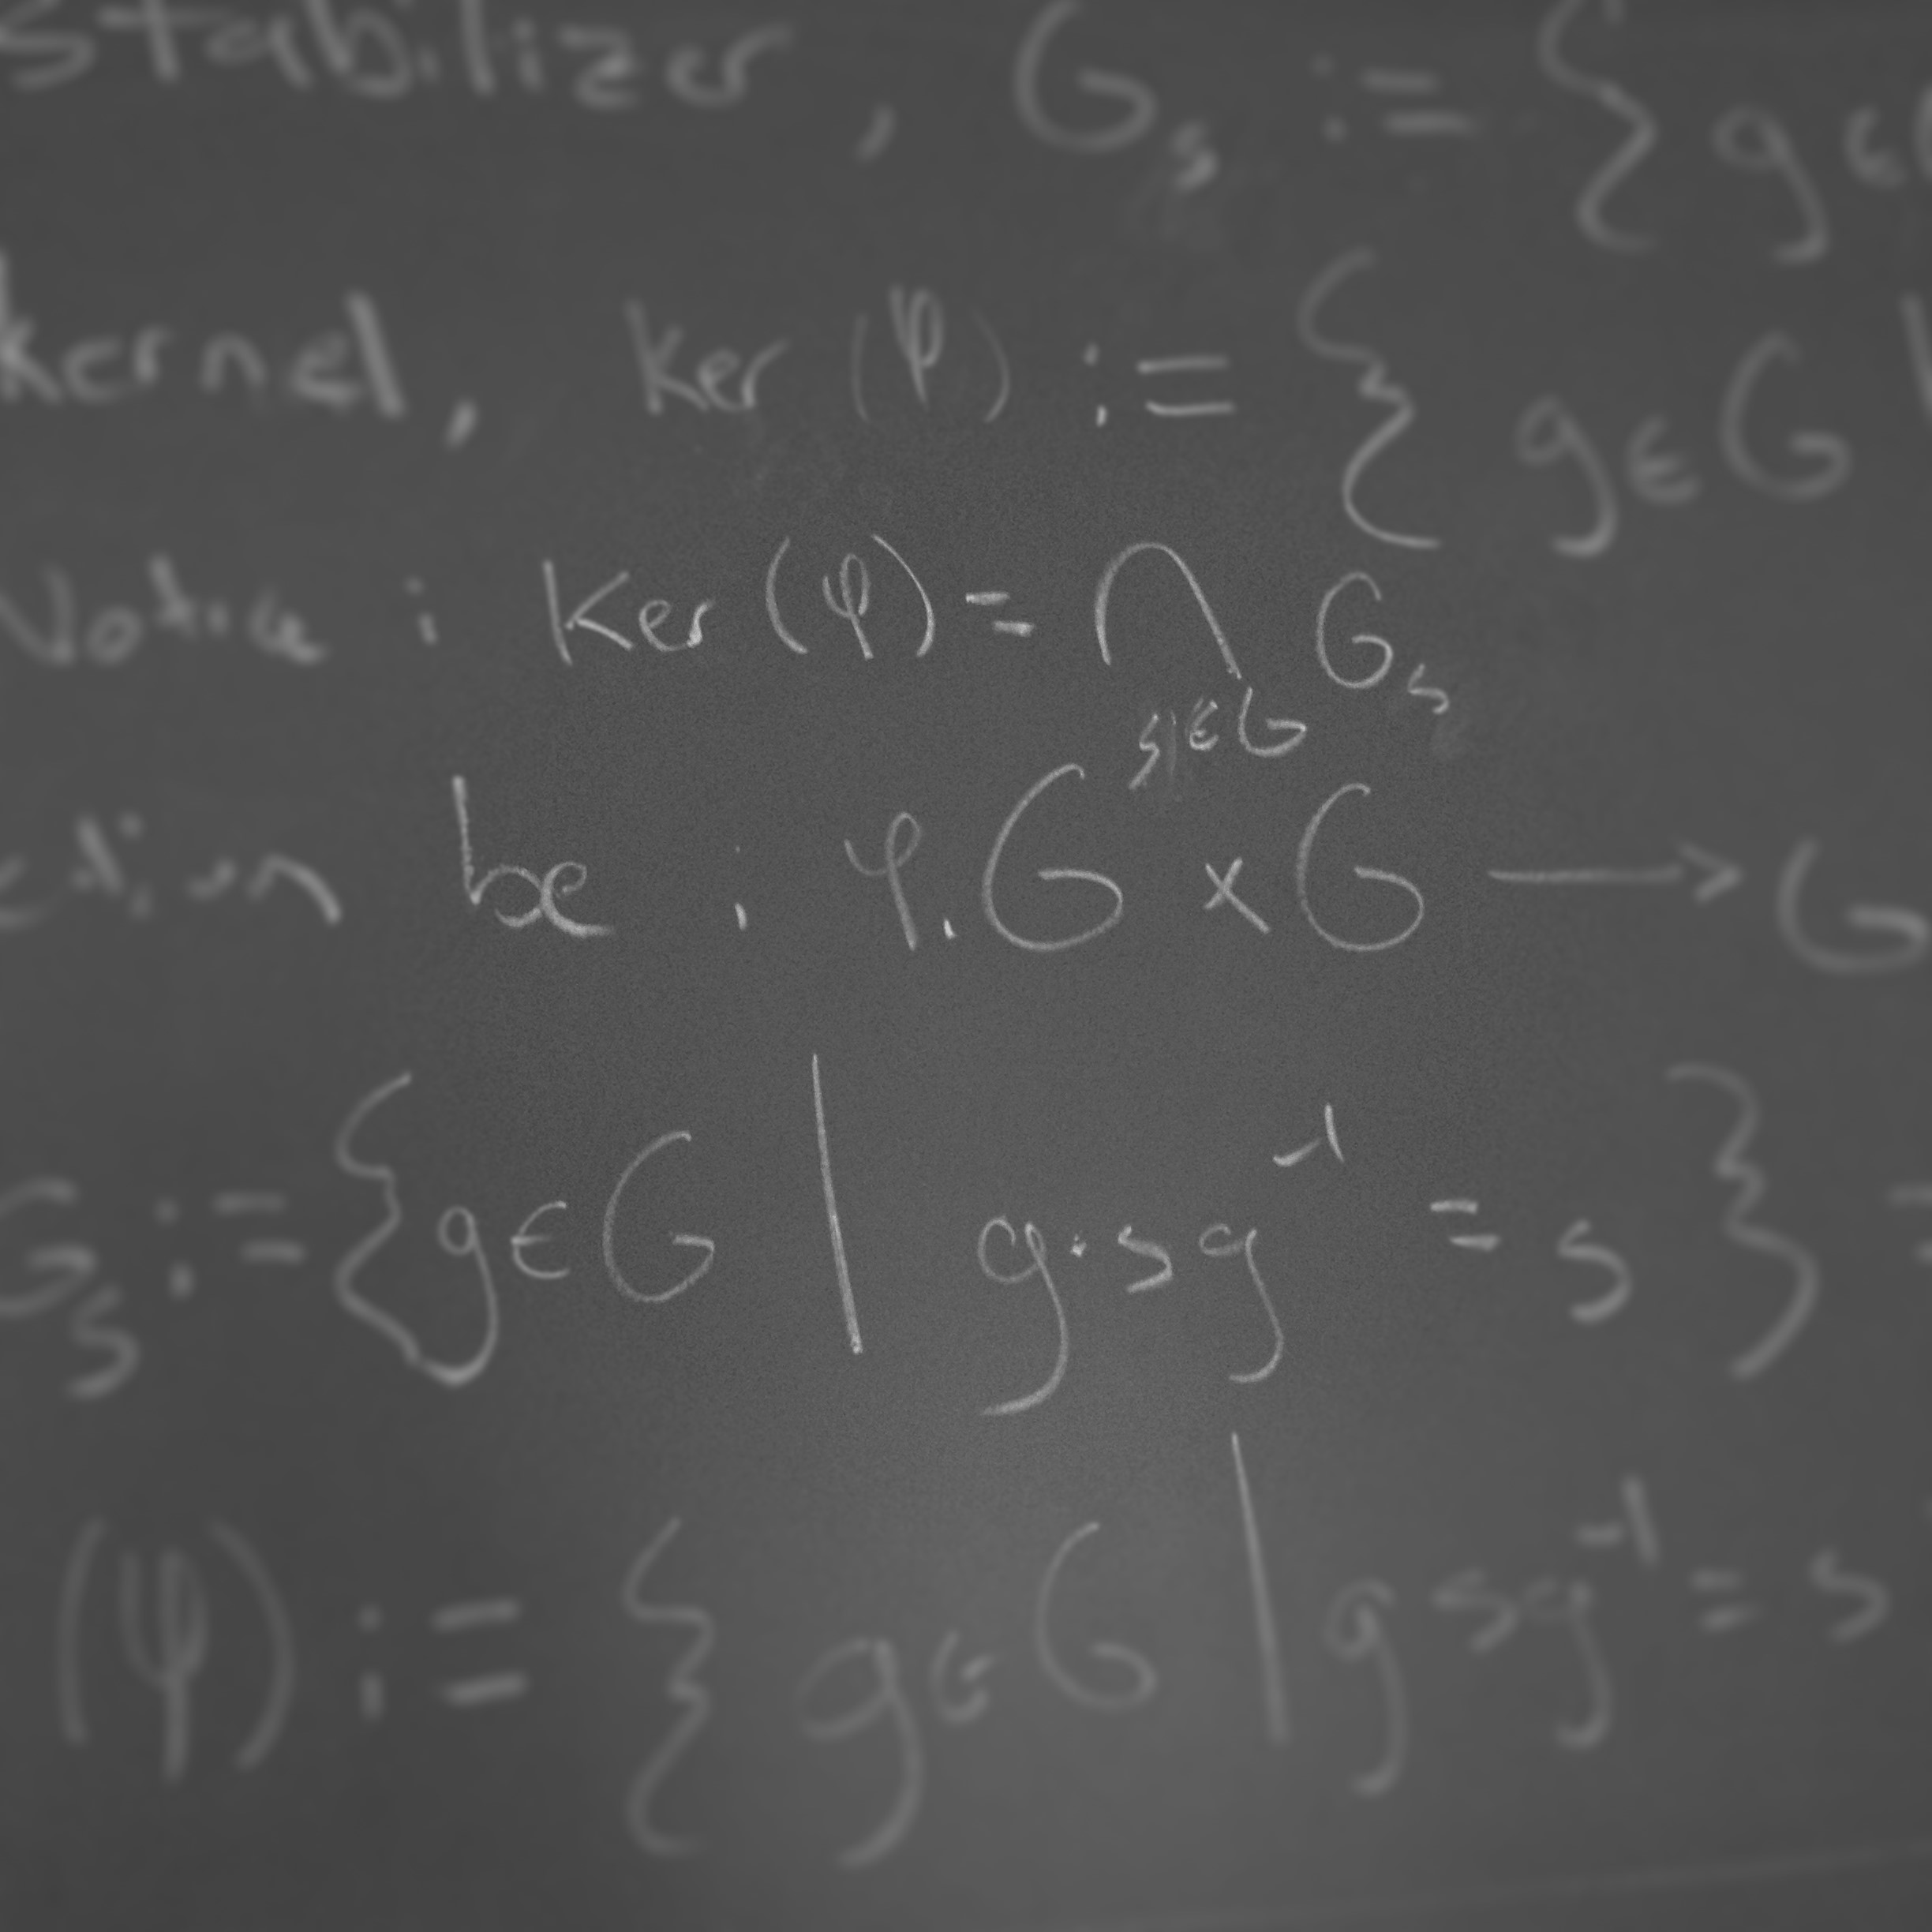 stabilizer, G_s := { g ∈
kernel, ker (φ) := { g ∈ G |
Notice : Ker (φ) = ⋂_{s∈G} G_s
ction be : φ. G × G → G
G_s := { g ∈ G | g·sg⁻¹ = s } =
(φ) := { g ∈ G | gsg⁻¹ = s